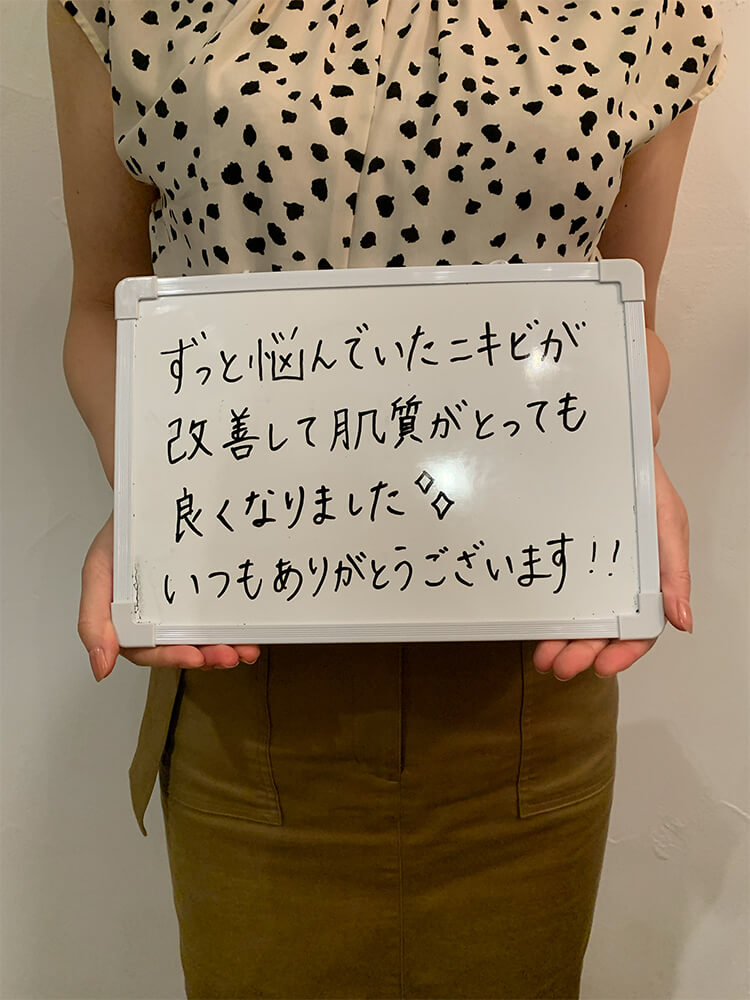 ずっと悩んでいたニキビが
改善して肌質がとっても
良くなりました✧✧
いつもありがとうございます!!